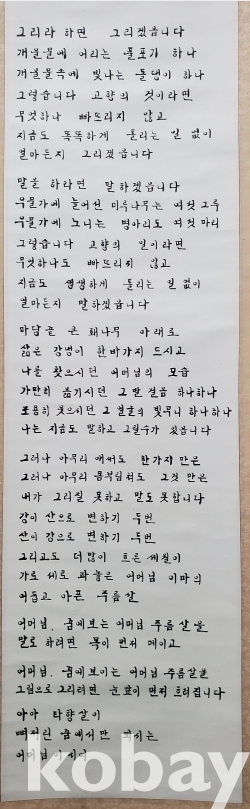 그리라 하면 그리겠습니다
개울물에 어리는 풀포기 하나
개울물속에 빛나는 돌멩이 하나
그렇습니다 고향의 것이라면
무엇하나 빠뜨리지 않고
지금도 똑똑하게 틀리는 일 없이
얼마든지 그리겠습니다
말을 하라면 말하겠습니다
우물가에 늘어선 미루나무는 여섯 그루
우물가에 노니는 병아리도 여섯 마리
그렇습니다 고향의 일이라면
무엇하나도 빠뜨리지 않고
지금도 생생하게 틀리는 일 없이
얼마든지 말하겠습니다
마당 끝 큰 홰나무 아래로
삶은 강냉이 한바가지 드시고
나를 찾으시던 어머님의 모습
가만히 옮기시던 그 발걸음 하나하나
조용히 웃으시던 그 얼굴의 빛무늬 하나하나
나는 지금도 말하고 그릴수가 있습니다
그러나 아무리 애써도 한가지만은
그러나 아무리 몸부림쳐도 그것만은
내가 그리질 못하고 말도 못합니다
강이 산으로 변하기 두번
산이 강으로 변하기 두번
그리고도 더 많이 흐른 세월이
가로 세로 파놓은 어머님 이마의
어둡고 아픈 주름살
어머님, 꿈에 보는 어머님 주름살을
말로 하려면 목이 먼저 메이고
어머님, 꿈에 보이는 어머님 주름살을
그림으로 그리려면 눈앞이 먼저 흐려집니다
아아 타향살이
뼈저린 꿈에서만
어머님
kobay